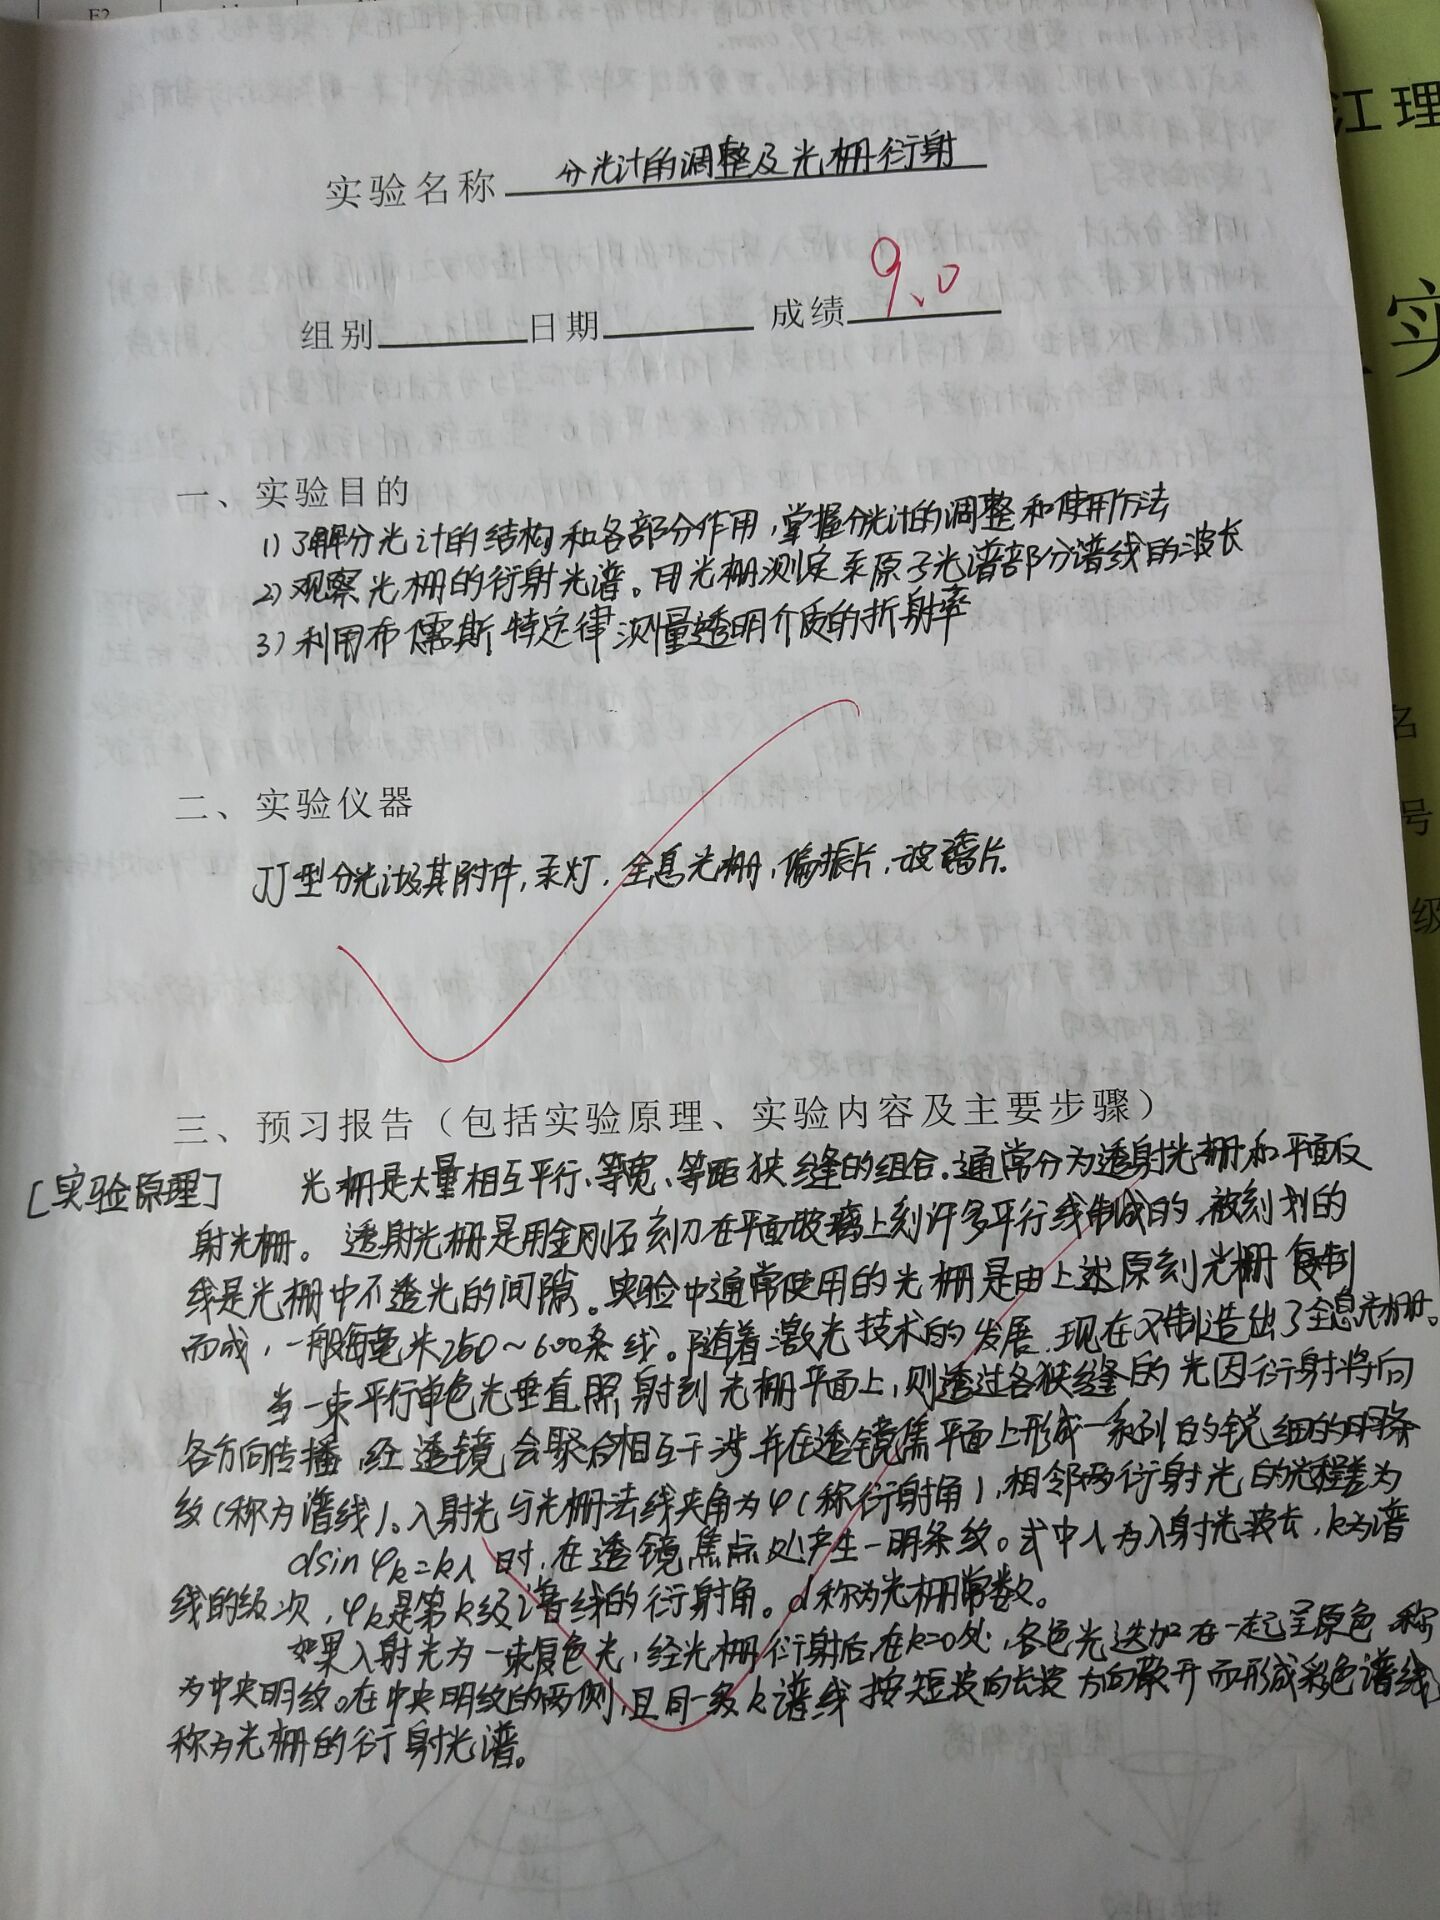 实验名称 分光计的调整及光栅衍射
组别 日期 成绩 9.0
一、实验目的
1) 了解分光计的结构和各部分作用,掌握分光计的调整和使用方法
2) 观察光栅的衍射光谱。用光栅测定汞原子光谱部分谱线的波长
3) 利用布儒斯特定律测量透明介质的折射率
二、实验仪器
JJ型分光计及其附件,汞灯,全息光栅,偏振片,玻璃片.
三、预习报告(包括实验原理、实验内容及主要步骤)
[实验原理] 光栅是大量相互平行、等宽、等距狭缝的组合.通常分为透射光栅和平面反
射光栅。透射光栅是用金刚石刻刀在平面玻璃上刻许多平行线制成的,被刻划的
线是光栅中不透光的间隙。实验中通常使用的光栅是由上述原刻光栅复制
而成,一般每毫米250~600条线。随着激光技术的发展.现在又制造出了全息光栅。
当一束平行单色光垂直照射到光栅平面上,则透过各狭缝的光因衍射将向
各方向传播,经透镜会聚后相互干涉并在透镜焦平面上形成一系列的锐细的明条
纹(称为谱线)。入射光与光栅法线夹角为φ(称衍射角),相邻两衍射光的光程差为
dsinφk=kλ时,在透镜焦点处产生一明条纹。式中λ为入射光波长,k为谱
线的级次,φk是第k级谱线的衍射角。d称为光栅常数。
如果入射光为一束复色光,经光栅衍射后,在k=0处,各色光迭加在一起呈原色,称
为中央明纹。在中央明纹的两侧,且同一级k谱线按短波向长波方向散开而形成彩色谱线
称为光栅的衍射光谱。
江理
实
名
号
级